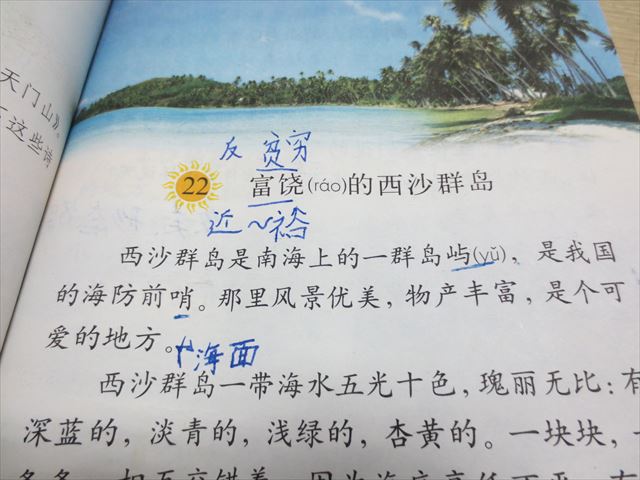 天门山》。
这些诗
反 贫穷
22 富饶(ráo)的西沙群岛
近 ~裕
西沙群岛是南海上的一群岛屿(yǔ)，是我国
的海防前哨。那里风景优美，物产丰富，是个可
爱的地方。
海面
西沙群岛一带海水五光十色，瑰丽无比：有
深蓝的，淡青的，浅绿的，杏黄的。一块块，